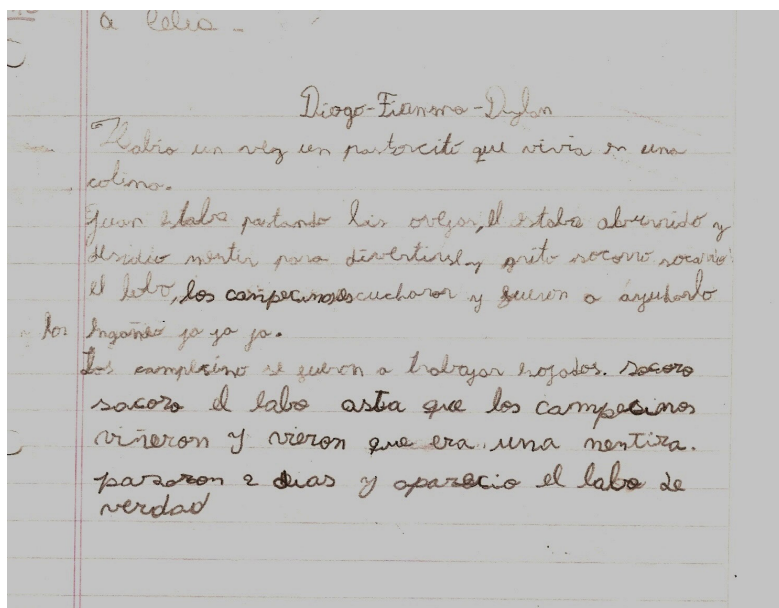 a Celia -
Diogo-Fianma-Dylan
Habia un vez un pastorcito que vivia en una
colina.
Juan estaba pastando las ovejas, el estaba aburrido y
desidio mentir para divertirse y grito socorro socorro
el lobo, los campecinos escucharon y fueron a ayudarlo
los engañe ja ja ja.
Los campecino se fueron a trabajar enojados. socoro
socoro el lobo asta que los campecinos
viñeron y vieron que era una mentira.
pasaron 2 dias y aparecio el lobo de
verdad